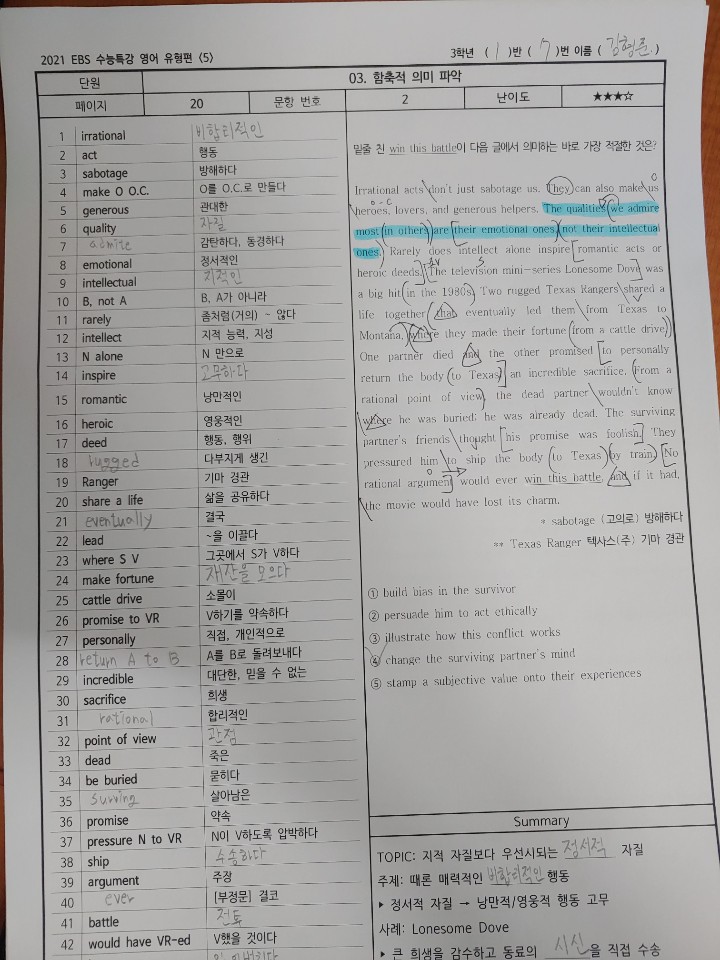 2021 EBS 수능특강 영어 유형편 <5>
3학년 ( 1 )반 ( 7 )번 이름 ( 김형준 )
단원 03. 함축적 의미 파악
페이지 20 문항 번호 2 난이도 ★★★☆
1 irrational 비합리적인
2 act 행동
3 sabotage 방해하다
4 make O O.C. O를 O.C.로 만들다
5 generous 관대한
6 quality 자질
7 admire 감탄하다, 동경하다
8 emotional 정서적인
9 intellectual 지적인
10 B, not A B, A가 아니라
11 rarely 좀처럼(거의) ~ 않다
12 intellect 지적 능력, 지성
13 N alone N 만으로
14 inspire 고무하다
15 romantic 낭만적인
16 heroic 영웅적인
17 deed 행동, 행위
18 rugged 다부지게 생긴
19 Ranger 기마 경관
20 share a life 삶을 공유하다
21 eventually 결국
22 lead ~을 이끌다
23 where S V 그곳에서 S가 V하다
24 make fortune 재산을 모으다
25 cattle drive 소몰이
26 promise to VR V하기를 약속하다
27 personally 직접, 개인적으로
28 return A to B A를 B로 돌려보내다
29 incredible 대단한, 믿을 수 없는
30 sacrifice 희생
31 rational 합리적인
32 point of view 관점
33 dead 죽은
34 be buried 묻히다
35 surviing 살아남은
36 promise 약속
37 pressure N to VR N이 V하도록 압박하다
38 ship 수송하다
39 argument 주장
40 ever [부정문] 결코
41 battle 전투
42 would have VR-ed V했을 것이다
밑줄 친 win this battle이 다음 글에서 의미하는 바로 가장 적절한 것은?
Irrational acts don't just sabotage us. They can also make us
heroes, lovers, and generous helpers. The qualities we admire
most in others are their emotional ones, not their intellectual
ones. Rarely does intellect alone inspire romantic acts or
heroic deeds. The television mini-series Lonesome Dove was
a big hit in the 1980s. Two rugged Texas Rangers shared a
life together that eventually led them from Texas to
Montana, where they made their fortune from a cattle drive.
One partner died and the other promised to personally
return the body to Texas, an incredible sacrifice. From a
rational point of view, the dead partner wouldn't know
where he was buried; he was already dead. The surviving
partner's friends thought his promise was foolish. They
pressured him to ship the body to Texas by train. No
rational argument would ever win this battle, and if it had,
the movie would have lost its charm.
* sabotage (고의로) 방해하다
** Texas Ranger 텍사스(주) 기마 경관
① build bias in the survivor
② persuade him to act ethically
③ illustrate how this conflict works
④ change the surviving partner's mind
⑤ stamp a subjective value onto their experiences
Summary
TOPIC: 지적 자질보다 우선시되는 정서적 자질
주제: 때론 매력적인 비합리적인 행동
▸ 정서적 자질 → 낭만적/영웅적 행동 고무
사례: Lonesome Dove
▸ 큰 희생을 감수하고 동료의 시신을 직접 수송